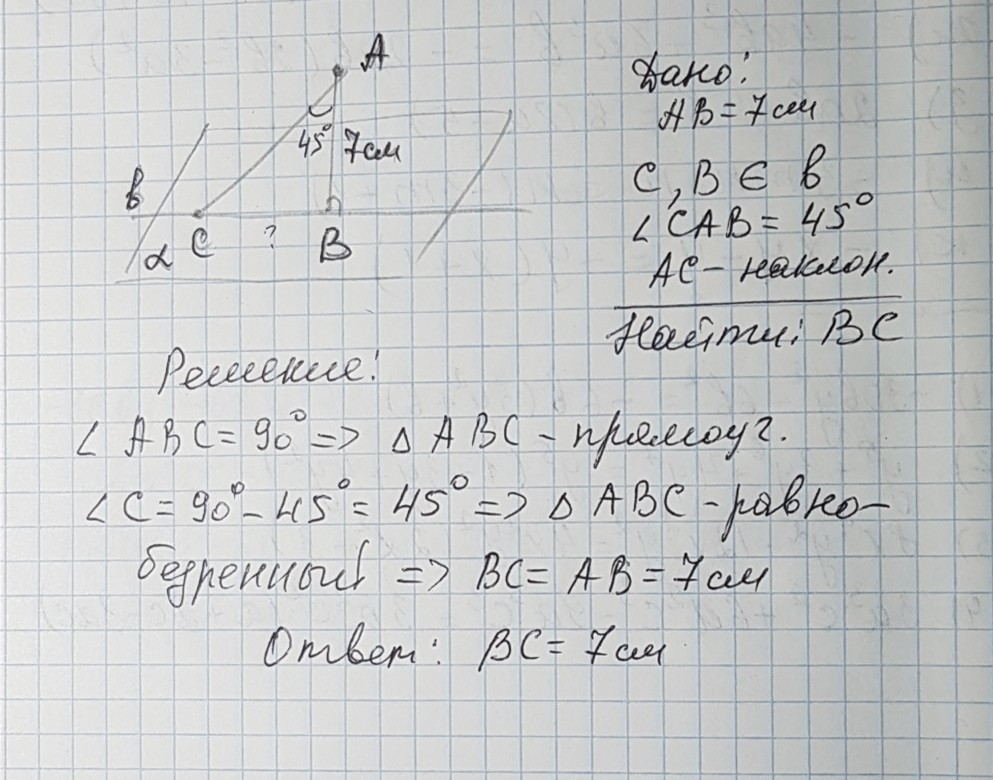 A
45° 7см
в
α C ? B
Дано:
AB = 7см
C, B ∈ в
∠CAB = 45°
AC - наклон.
Найти: BC
Решение:
∠ ABC = 90° => Δ ABC - прямоуг.
∠C = 90° - 45° = 45° => Δ ABC - равно-
бедренный => BC = AB = 7см
Ответ: BC = 7см